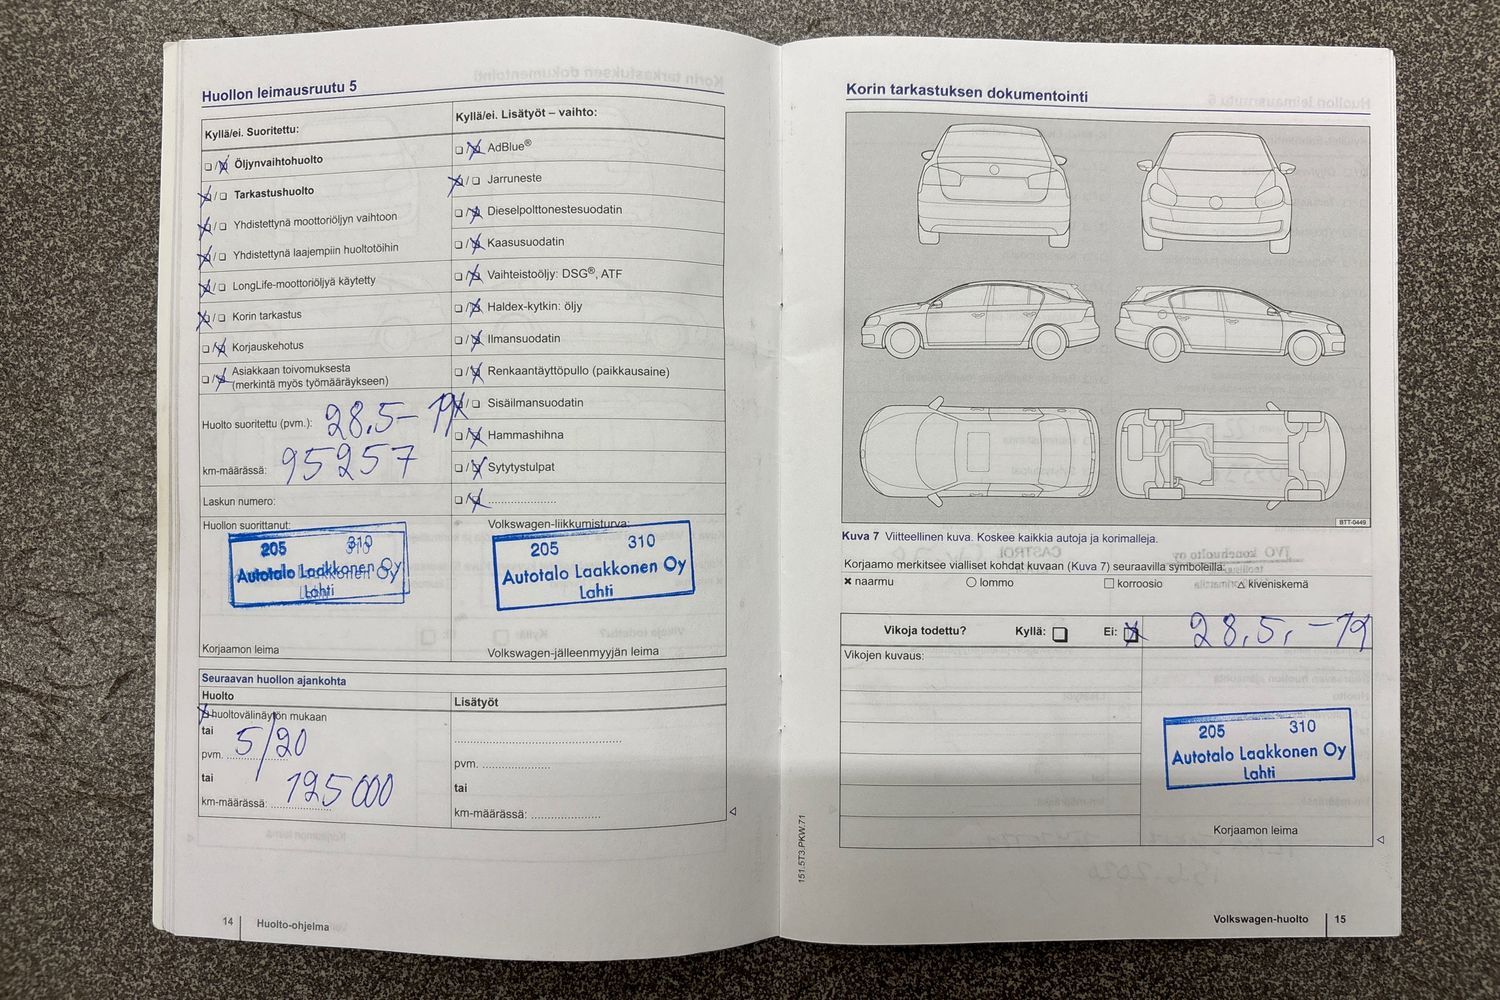 Huollon leimausruutu 5
Kyllä/ei. Suoritettu:
Öljynvaihtohuolto
Tarkastushuolto
Yhdistettynä moottoriöljyn vaihtoon
Yhdistettynä laajempiin huoltotöihin
LongLife-moottoriöljyä käytetty
Korin tarkastus
Korjauskehotus
Asiakkaan toivomuksesta
(merkintä myös työmääräykseen)
Huolto suoritettu (pvm.): 28.5-19
km-määrässä: 95257
Laskun numero:
Huollon suorittanut:
205 310
Autotalo Laakkonen Oy
Lahti
Korjaamon leima
Kyllä/ei. Lisätyöt – vaihto:
AdBlue®
Jarruneste
Dieselpolttonestesuodatin
Kaasusuodatin
Vaihteistoöljy: DSG®, ATF
Haldex-kytkin: öljy
Ilmansuodatin
Renkaantäyttöpullo (paikkausaine)
Sisäilmansuodatin
Hammashihna
Sytytystulpat
Volkswagen-liikkumisturva:
205 310
Autotalo Laakkonen Oy
Lahti
Volkswagen-jälleenmyyjän leima
Seuraavan huollon ajankohta
Huolto
huoltovälinäytön mukaan
tai
pvm. 5/20
tai
km-määrässä: 125000
Lisätyöt
pvm.
tai
km-määrässä:
14 Huolto-ohjelma
Korin tarkastuksen dokumentointi
BTT-0449
Kuva 7 Viitteellinen kuva. Koskee kaikkia autoja ja korimalleja.
Korjaamo merkitsee vialliset kohdat kuvaan (Kuva 7) seuraavilla symboleilla:
naarmu lommo korroosio kiveniskemä
Vikoja todettu? Kyllä: Ei: 28.5.-19
Vikojen kuvaus:
205 310
Autotalo Laakkonen Oy
Lahti
Korjaamon leima
151.5T3.PKW.71
Volkswagen-huolto 15